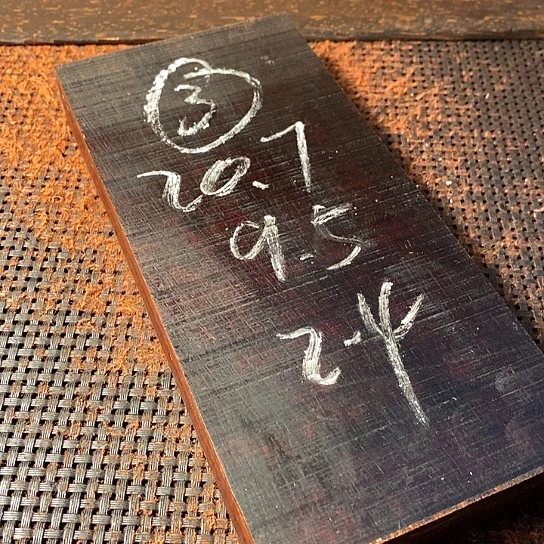 ③
20.7
9.5
2.4